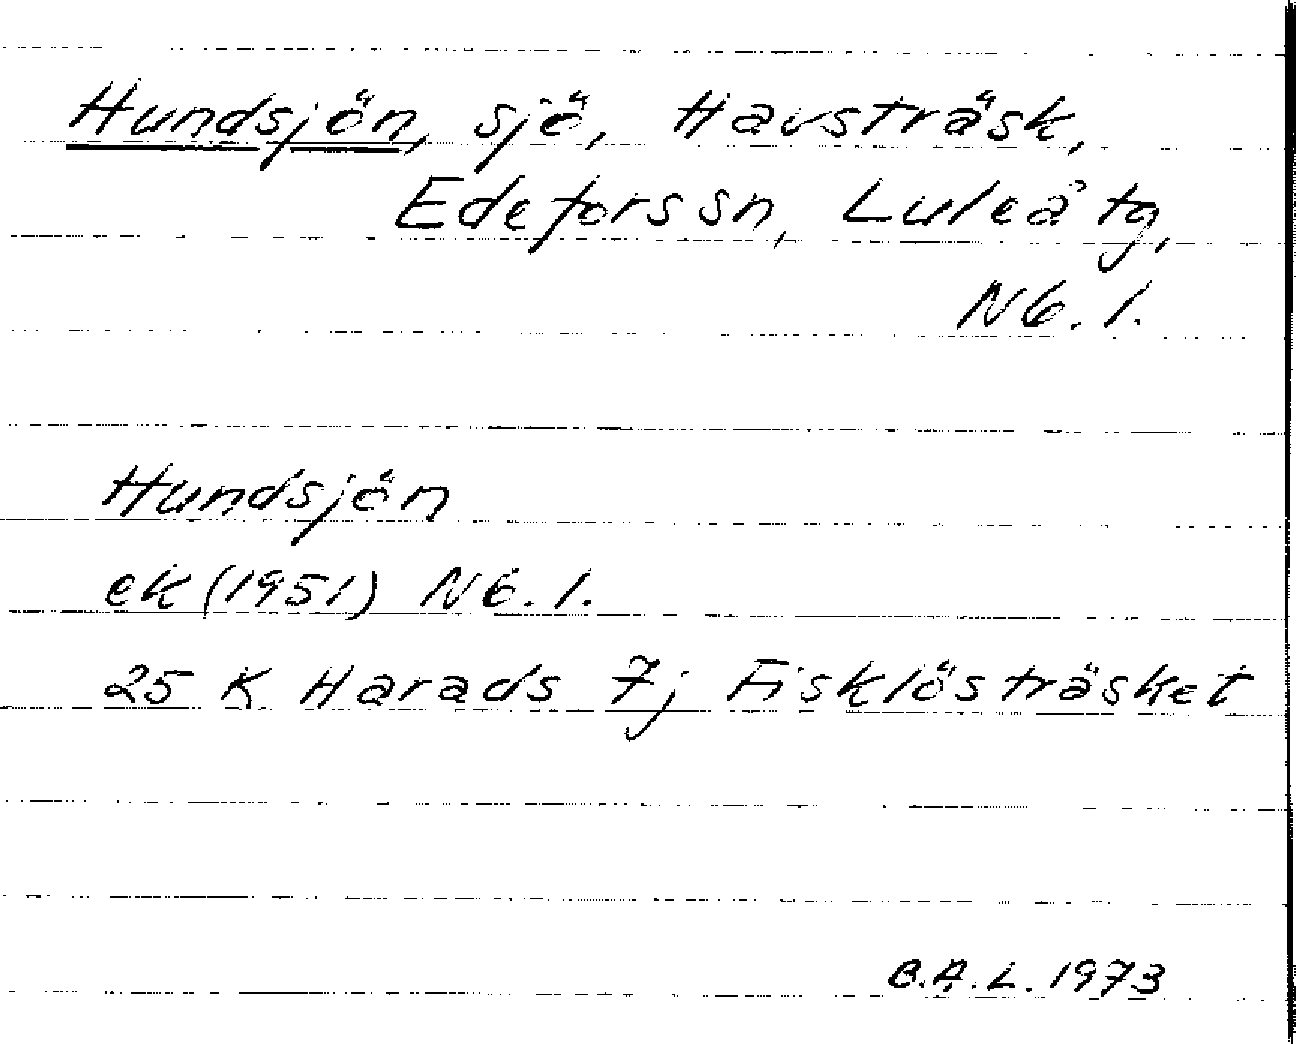 Hundsjön, sjö, Havsträsk,
Edeforssn, Luleå tg,
N6. 1.
Hundsjön
ek (1951) N6. 1.
25 K Harads 7j Fisklösträsket
B.A.L. 1973